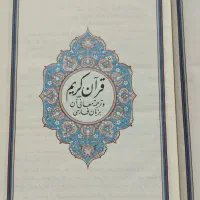 قرآن کریم
و ترجمهٔ معانی آن
بزبان فارسی